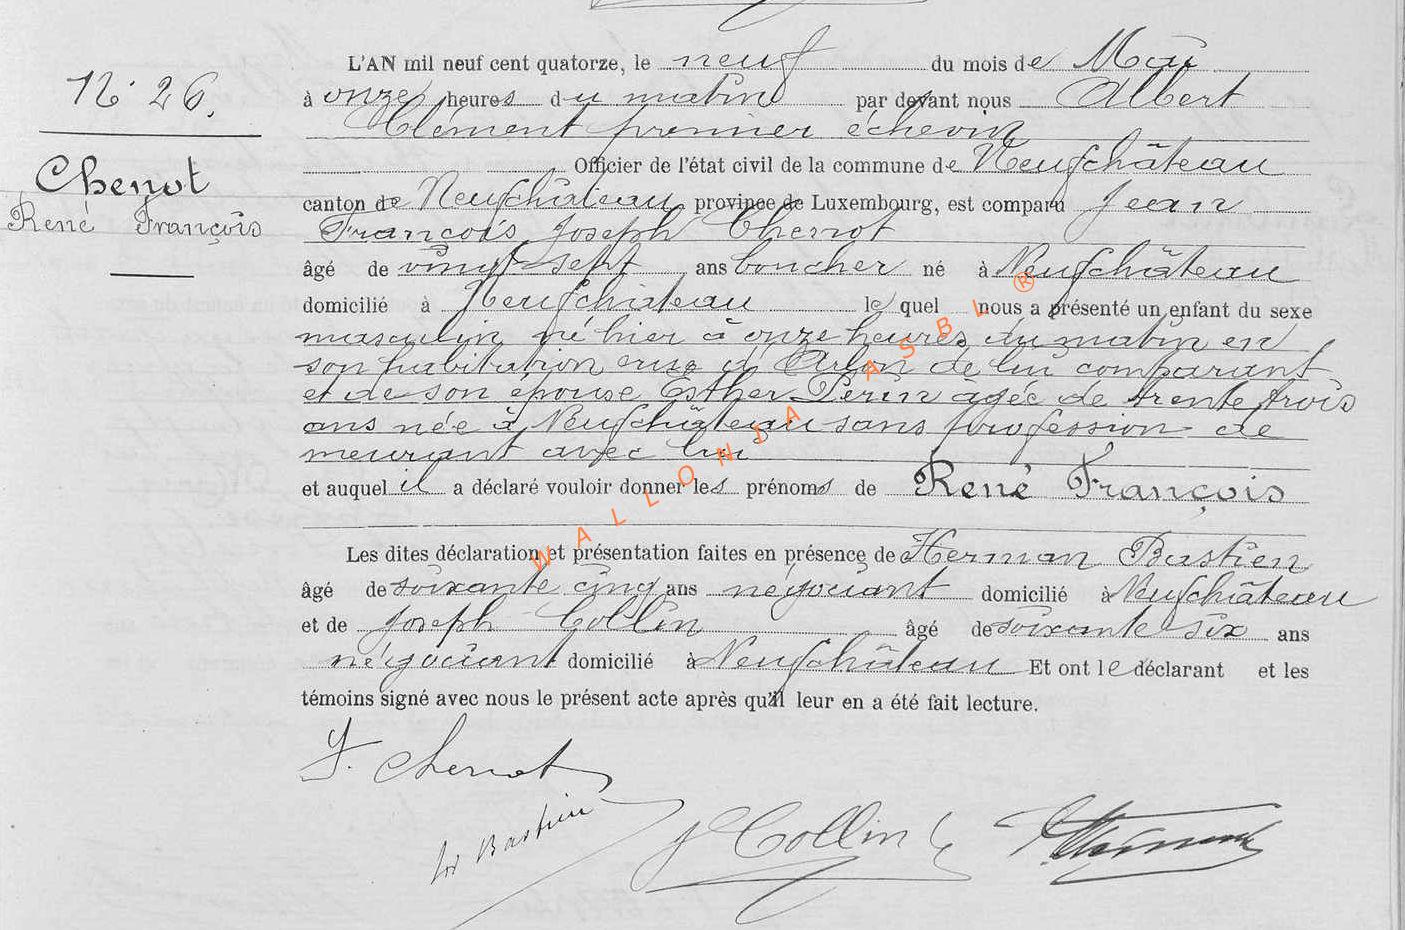 L'AN mil neuf cent quatorze, le neuf du mois de Mai
N° 26.
à onze heures du matin par devant nous Albert
Clément premier échevin
Officier de l'état civil de la commune de Neufchâteau
Chenot
canton de Neufchâteau, province de Luxembourg, est comparu Jean
René François
François Joseph Chenot
âgé de vingt-sept ans boucher né à Neufchâteau
domicilié à Neufchâteau lequel nous a présenté un enfant du sexe
masculin, né hier à onze heures du matin en
son habitation rue d'Arlon de lui comparant
et de son épouse Esther Perin âgée de trente trois
ans née à Neufchâteau sans profession de
meurant avec lui
et auquel il a déclaré vouloir donner les prénoms de René François
Les dites déclaration et présentation faites en présence de Herman Bastien
âgé de soixante cinq ans négociant domicilié à Neufchâteau
et de Joseph Collin âgé de soixante six ans
négociant domicilié à Neufchâteau Et ont le déclarant et les
témoins signé avec nous le présent acte après qu'il leur en a été fait lecture.
J. Chenot
Bastien
J Collin
WALLONIA ASBL ®